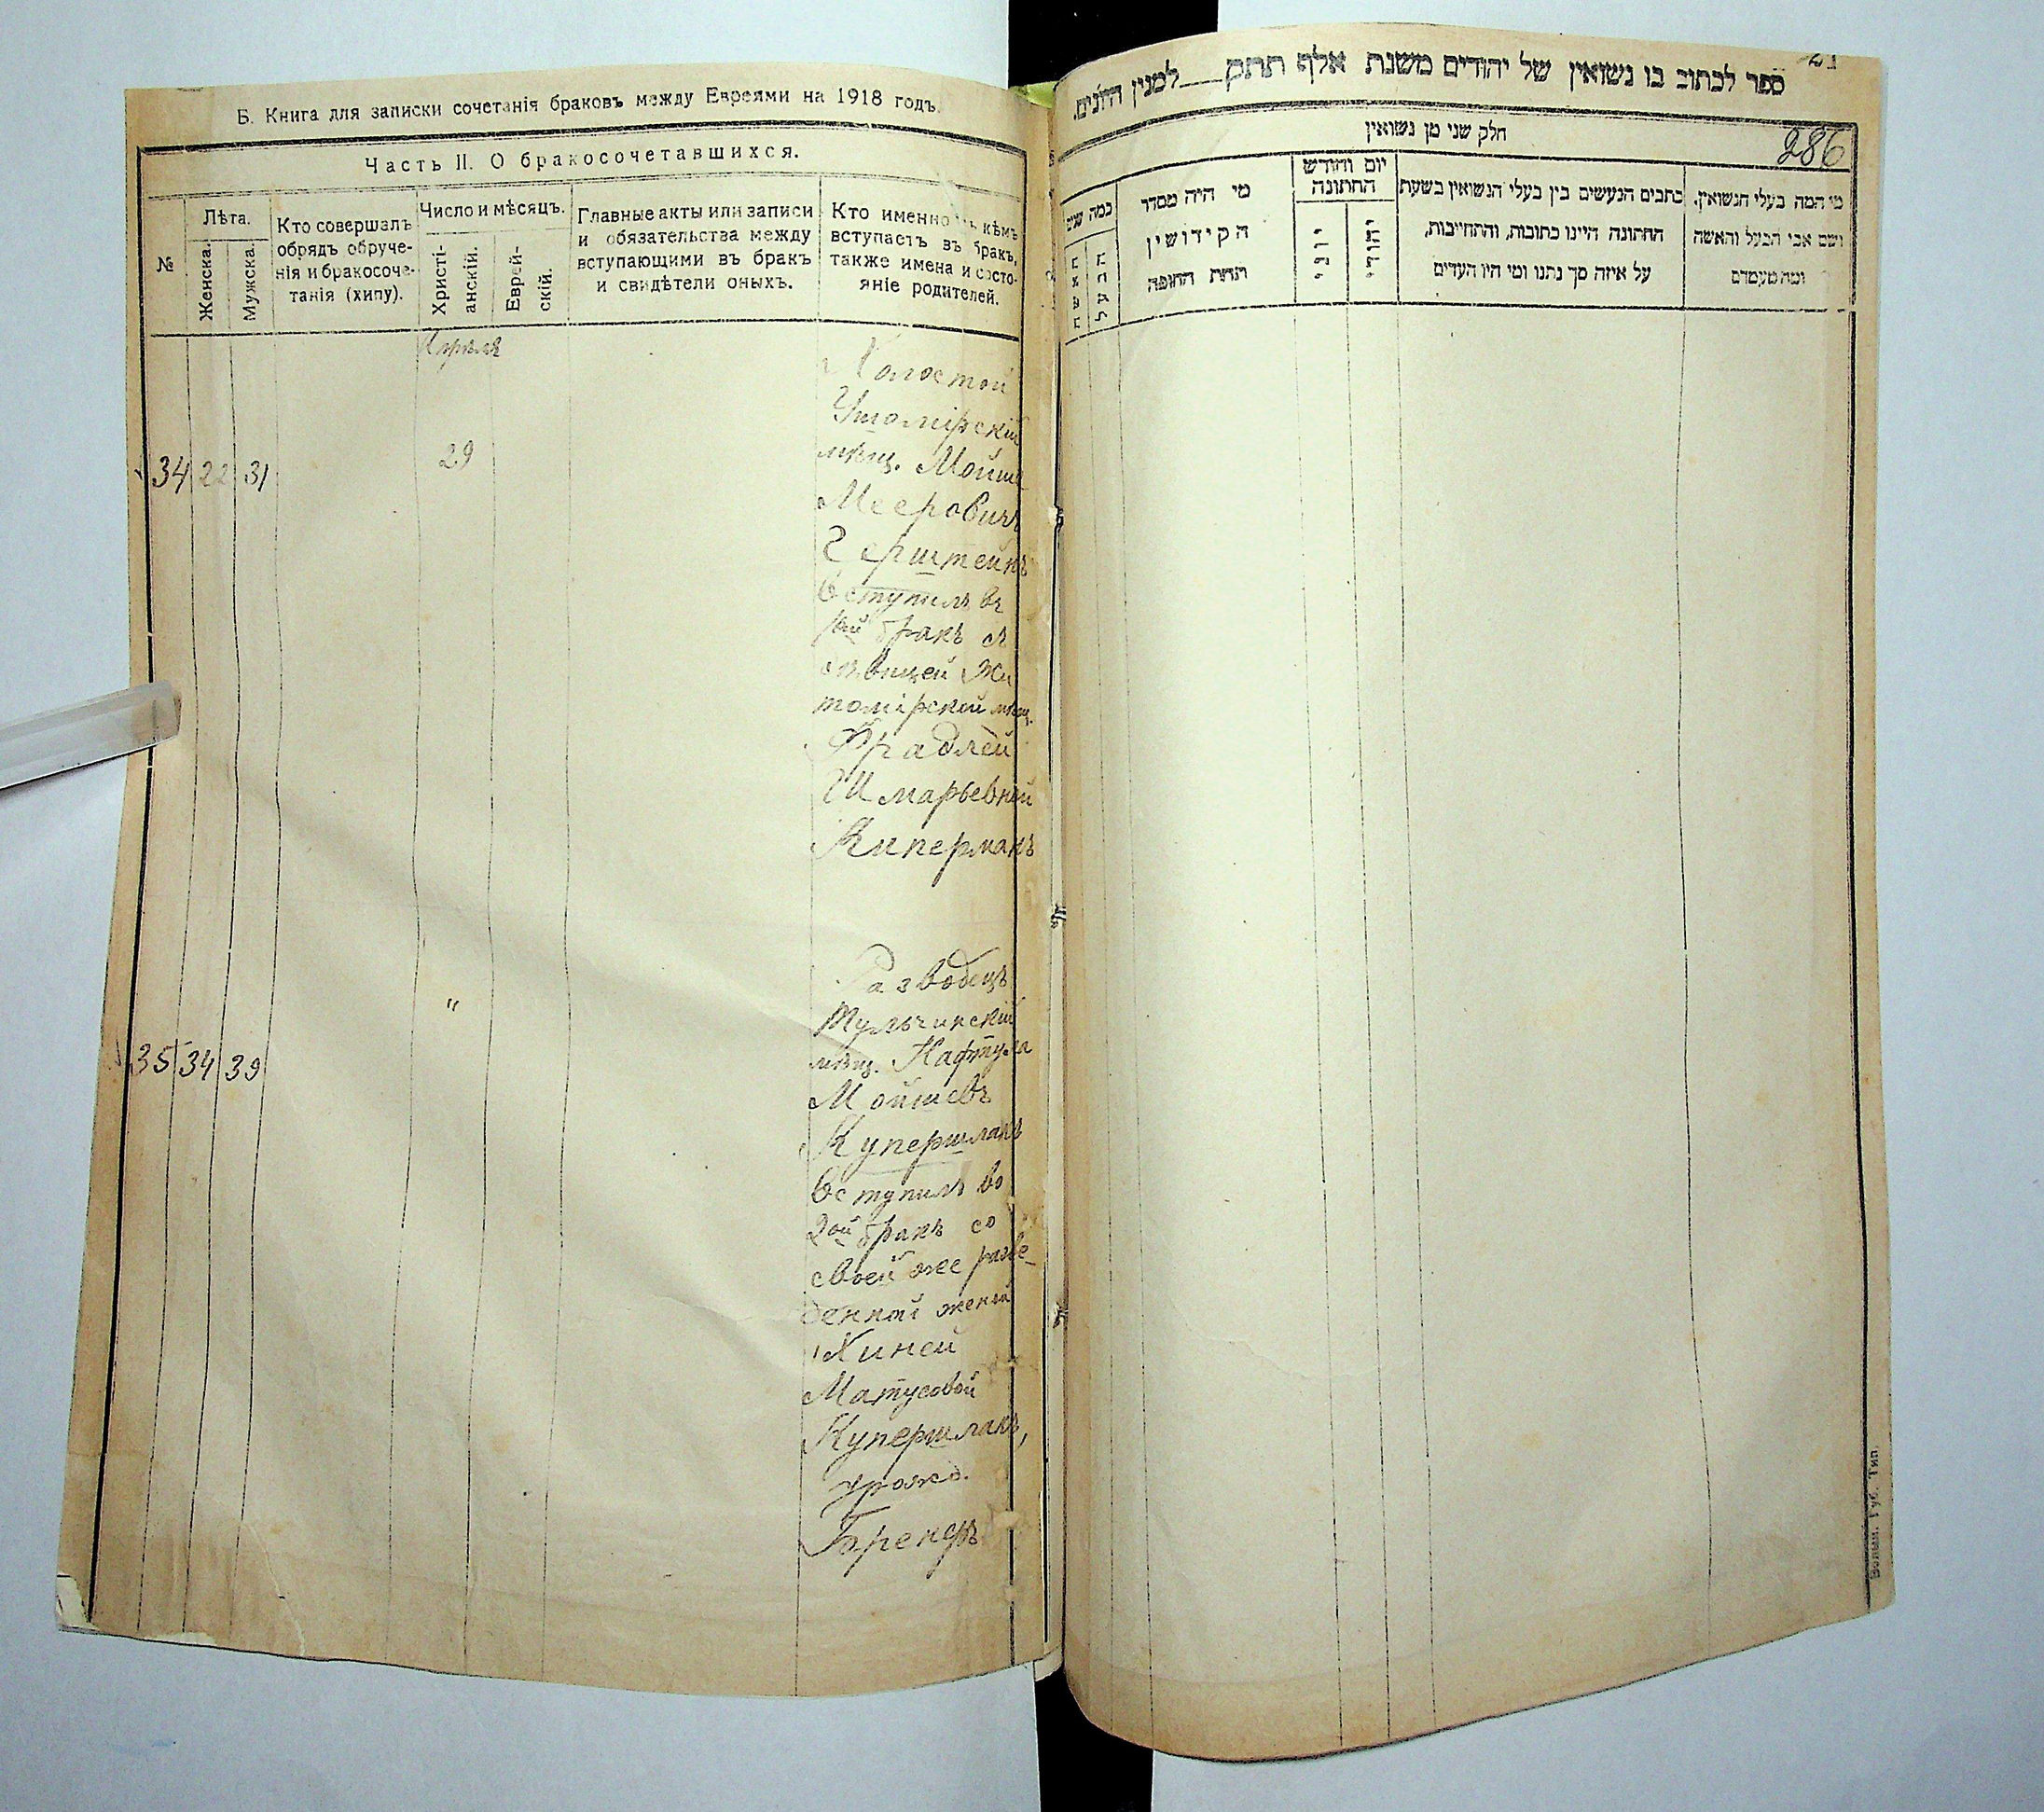 Б. Книга для записки сочетанія браковъ между Евреями на 1918 годъ.
Часть II. О бракосочетавшихся.
№
Лѣта.
Женска.
Мужска.
Кто совершалъ
обрядъ обруче-
нія и бракосоче-
танія (хипу).
Число и мѣсяцъ.
Христі-
анскій.
Еврей-
скій.
Главные акты или записи
и обязательства между
вступающими въ бракъ
и свидѣтели оныхъ.
Кто именно кѣмъ
вступаетъ въ бракъ,
также имена и состо-
яніе родителей.
Апрѣля
34 22 31
29
Холостой
Ушомірскій
мѣщ. Мойше
Мееровичъ
Герштейнъ
вступилъ въ
1ый бракъ съ
дѣвицей Жи
томірской мѣщ.
Фрадлей
Шмарьевной
Киперманъ
35 34 39
"
Разводецъ
Тульчинскій
мѣщ. Нафтула
Мойшевъ
Купершлакъ
вступилъ во
2ой бракъ со
своей же разве-
денной женой
Хиней
Матусовой
Купершлакъ,
урожд.
ספר לכתוב בו נשואין של יהודים משנת אלף תתק למנין היונים.
חלק שני מן נשואין
286
מי המה בעלי הנשואין,
ושם אבי הבעל והאשה
ומה מעמדם
כתבים הנעשים בין בעלי הנשואין בשעת
החתונה היינו כתובות, והתחייבות,
על איזה סך נתנו ומי היו העדים
יום וחודש
החתונה
יהודי
יוני
מי היה מסדר
הקידושין
תחת החופה
כמה שנים
הבעל
האשה
Волын. Губ. Тип.